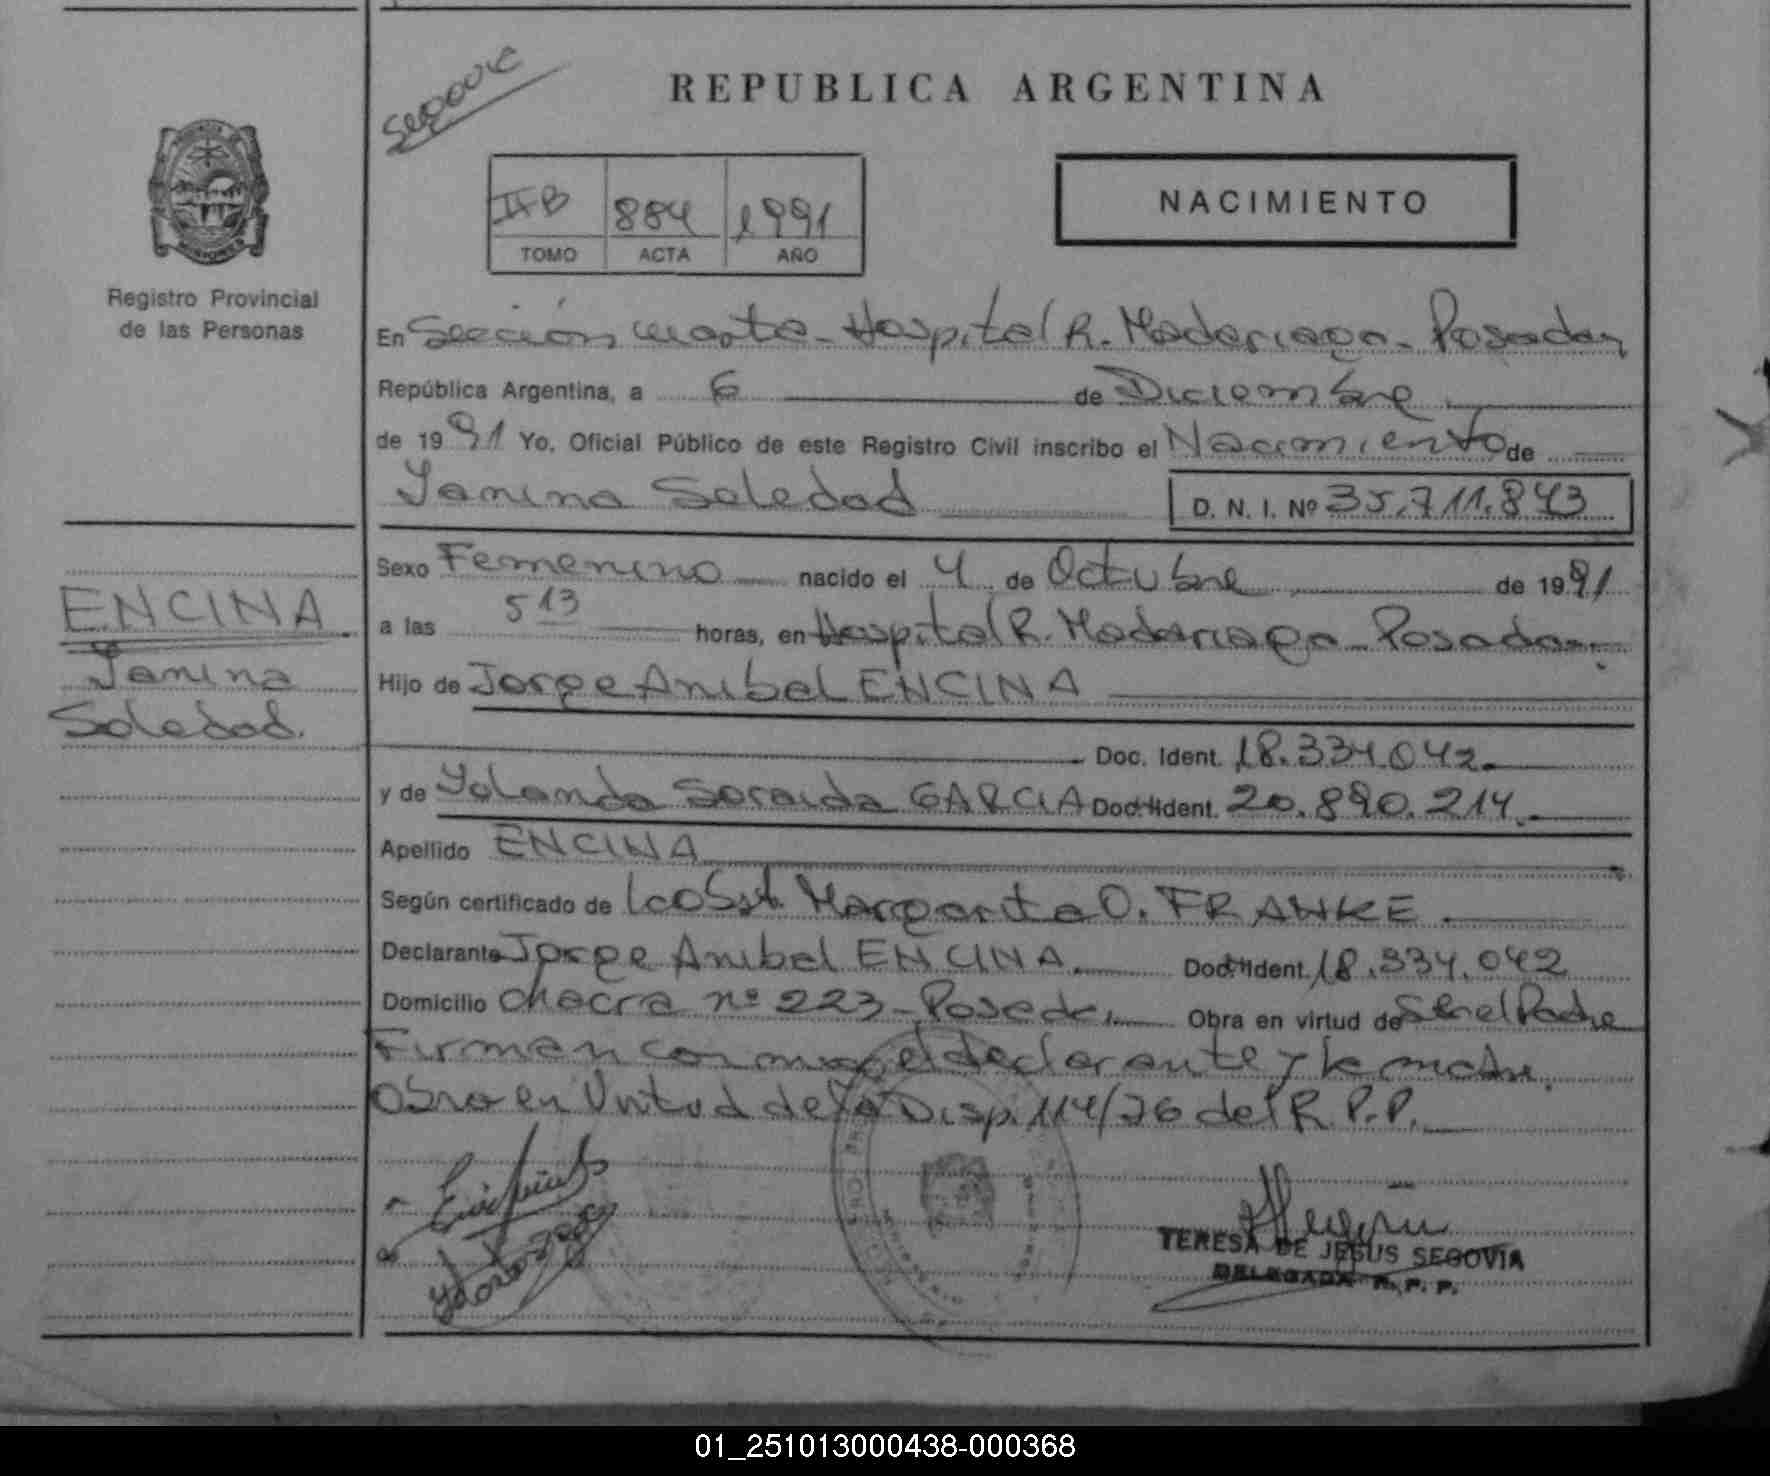 REPUBLICA ARGENTINA
IIB 884 1991
TOMO ACTA AÑO
NACIMIENTO
Registro Provincial
de las Personas
En Sección cuarta - Hospital R. Madariaga - Posadas
República Argentina, a 6 de Diciembre
de 1991 Yo, Oficial Público de este Registro Civil inscribo el Nacimiento de
Yanina Soledad D. N. I. Nº 35.711.843
Sexo Femenino nacido el 4 de Octubre de 1991
a las 5 13 horas, en Hospital R. Madariaga - Posadas.
Hijo de Jorge Anibal ENCINA
Doc. Ident. 18.334.042
y de Yolanda Soraida GARCIA Doc. Ident. 20.890.214
Apellido ENCINA
Según certificado de Margarita O. FRANKE
Declarante Jorge Anibal ENCINA Doc. Ident. 18.334.042
Domicilio Chacra nº 223 - Posadas Obra en virtud de Ser el Padre
Firman conmigo el declarante y la madre.
Obro en Virtud de la Disp. 114/76 del R.P.P.
ENCINA
Yanina
Soledad.
TERESA DE JESUS SEGOVIA
DELEGADA R. P. P.
01_251013000438-000368